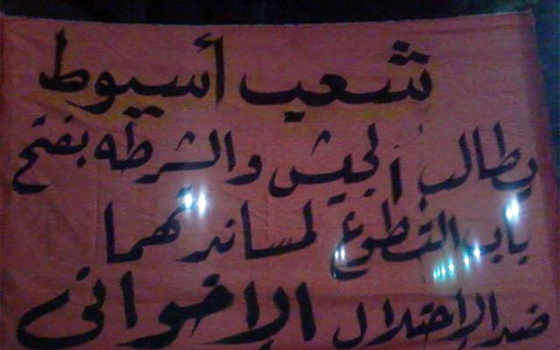 شعب أسيوط
يطالب الجيش والشرطه بفتح
باب التطوع لمساندتهما
ضد الإحتلال الإخوانى